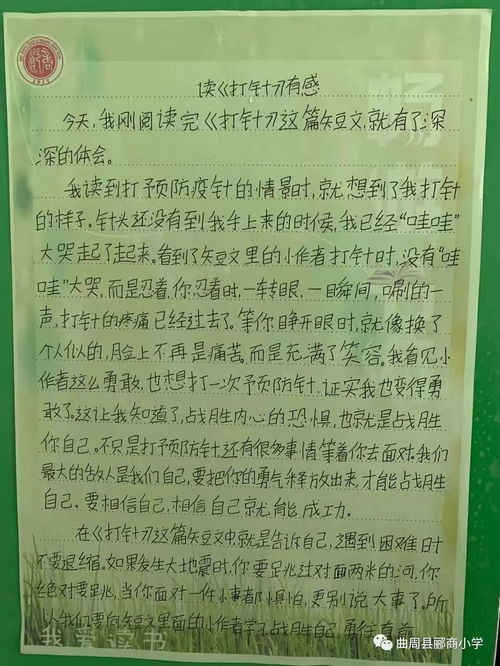 读《打针》有感
今天,我刚阅读完《打针》这篇短文,就有了深
深的体会。
我读到打予防疫针的情景时,就想到了我打针
的样子。针头还没有到我手上来的时候,我已经“哇哇”
大哭起了起来。看到了短文里的小作者打针时,没有“哇
哇”大哭,而是忍着,你忍着时,一转眼,一日瞬间,唰的一
声,打针的疼痛已经过去了。等你睁开眼时,就像换了
个人似的,脸上不再是痛苦。而是充满了笑容。我看见小
作者这么勇敢,也想打一次予防针,证实我也变得勇
敢了。这让我知道了,战胜内心的恐惧,也就是战胜
你自己。不只是打予防针,还有很多事情等着你去面对。我们
最大的敌人是我们自己,要把你的勇气释放出来,才能战胜
自己。要相信自己,相信自己就能成功。
在《打针》这篇短文中,就是告诉自己,遇到困难时
不要退缩。如果发生大地震时,你要跳过对面两米的河,你
绝对要跳,当你面对一件小事都惧怕,更别说大事了。所
以我们要向短文里面的小作者学习,战胜自己,勇往直前
我爱读书
曲周县郦商小学